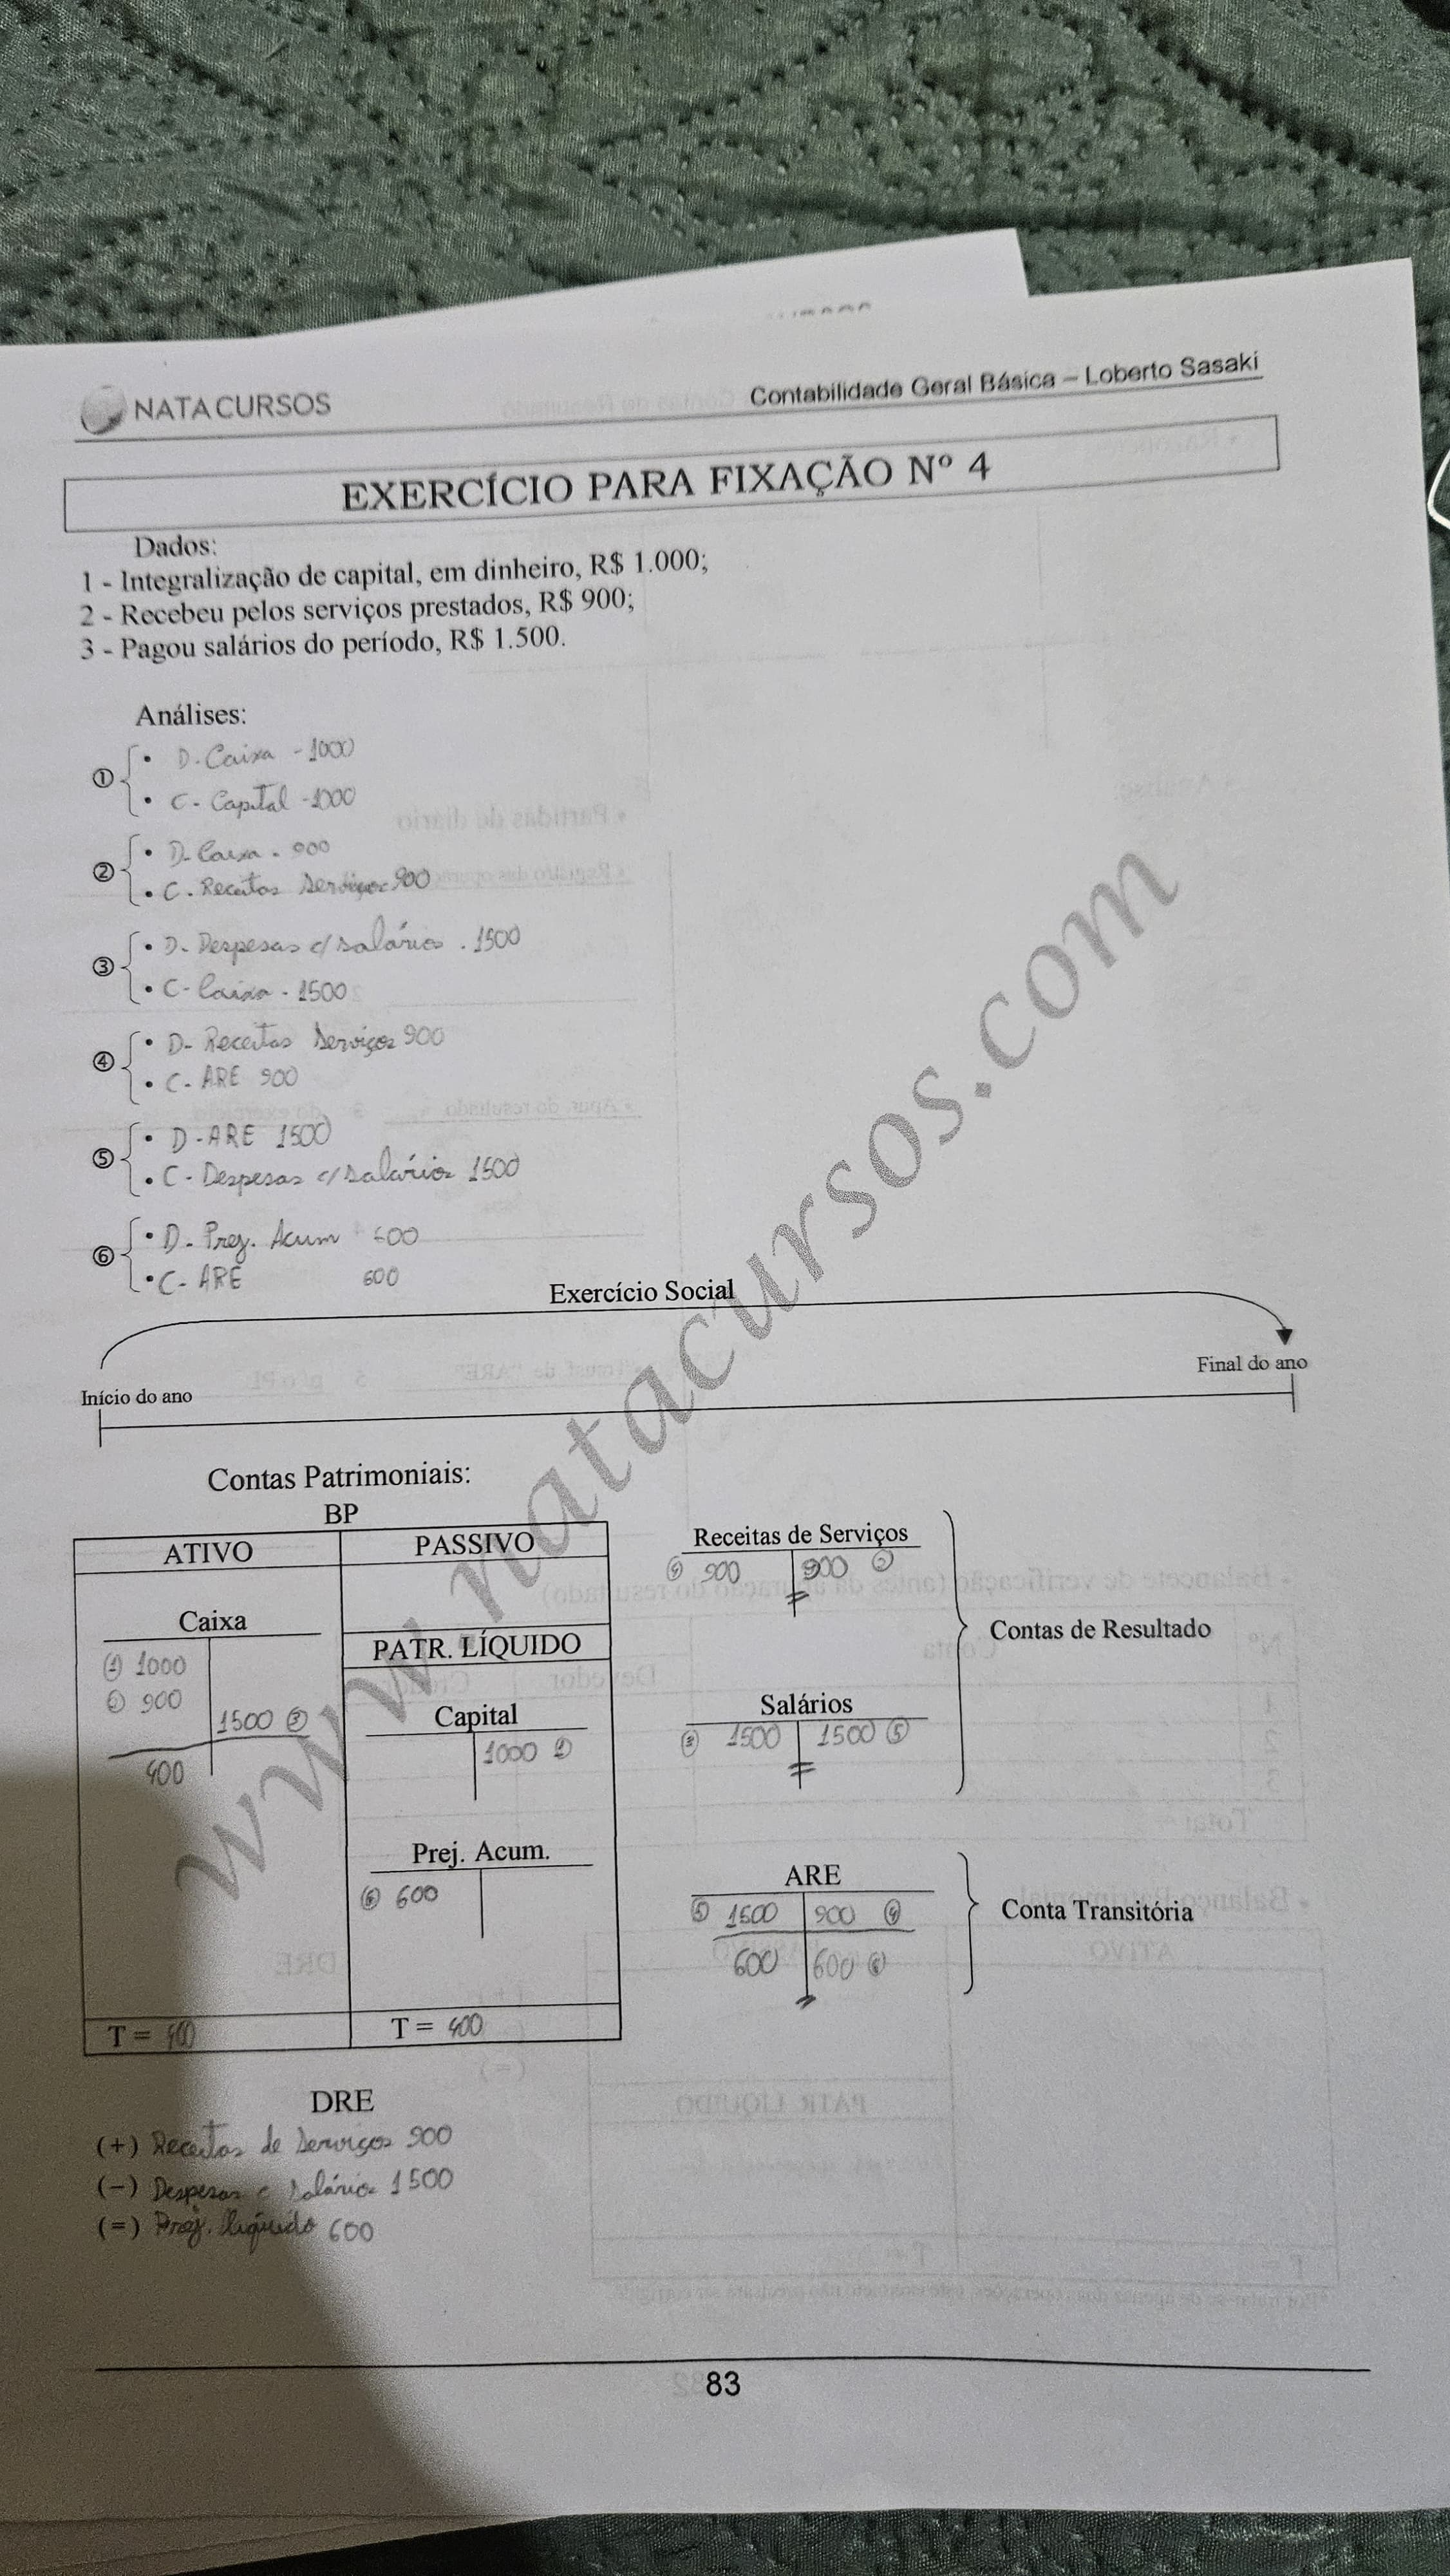 NATA CURSOS
Contabilidade Geral Básica – Loberto Sasaki
EXERCÍCIO PARA FIXAÇÃO Nº 4
Dados:
1 - Integralização de capital, em dinheiro, R$ 1.000;
2 - Recebeu pelos serviços prestados, R$ 900;
3 - Pagou salários do período, R$ 1.500.
Análises:
① • D. Caixa - 1000
• C - Capital - 1000
② • D- Caixa - 900
• C - Receitas Serviços 900
③ • D- Despesas c/ salários . 1500
• C- Caixa - 1500
④ • D- Receitas Serviços 900
• C- ARE 900
⑤ • D - ARE 1500
• C - Despesas c/ salários 1500
⑥ • D - Prej. Acum 600
• C- ARE 600
Exercício Social
Início do ano
Final do ano
Contas Patrimoniais:
BP
ATIVO
PASSIVO
Caixa
① 1000
② 900
1500 ③
400
PATR. LÍQUIDO
Capital
1000 ①
Prej. Acum.
⑥ 600
T = 400
T = 400
Receitas de Serviços
④ 900 900 ②
Salários
③ 1500 1500 ⑤
Contas de Resultado
ARE
⑤ 1500 900 ④
600 600 ⑥
Conta Transitória
DRE
(+) Receitas de Serviços 900
(−) Despesas c salários 1500
(=) Prej. líquido 600
83
www.natacursos.com